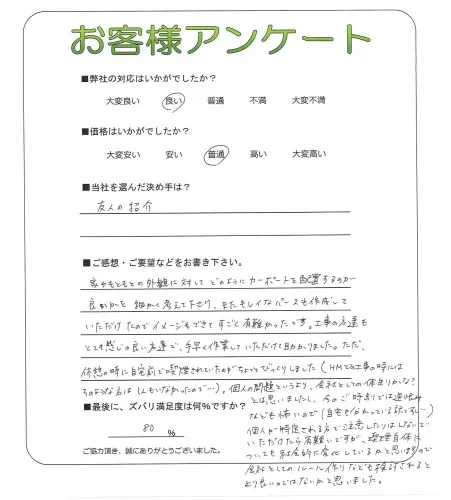 お客様アンケート
■弊社の対応はいかがでしたか？
大変良い 良い 普通 不満 大変不満
■価格はいかがでしたか？
大変安い 安い 普通 高い 大変高い
■当社を選んだ決め手は？
友人の紹介
■ご感想・ご要望などをお書き下さい。
家やもともとの外観に対してどのようにカーポートを配置するのが
良いかを細かく考えて下さり、またキレイなパースも作成して
いただけたのでイメージもできてすごく有難かったです。工事の方達も
とても感じの良い方達で、手早く作業していただけて助かりました。ただ、
休憩の時に自宅前で喫煙されていたのがちょっとびっくりしました（HMでの工事の時には
そのような方は1人もいなかったので…）。個人の問題というより、会社としての体制かな？
とは思いましたし、今のご時勢では逆恨み
なども怖いので（自宅も分かっている訳ですし…）
■最後に、ズバリ満足度は何％ですか？
80 ％
個人が特定される方で注意したりはしないで
いただけたら有難いですが、喫煙自体に
ついても社会的に変化しているかと思いますので
会社としてのルール作りなども検討されると
より良いのではないかと思いました。
ご協力頂き、誠にありがとうございました。